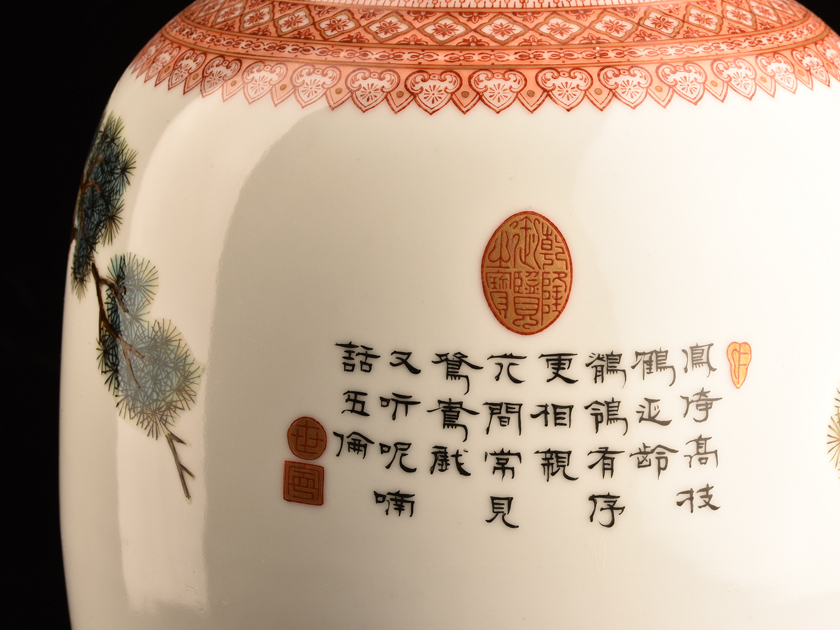 乾隆
御覽
之寶
鳳倚髙枝
鶴延齡
鶺鴒有序
更相親
花間常見
鴛鴦戲
又听呢喃
話五倫